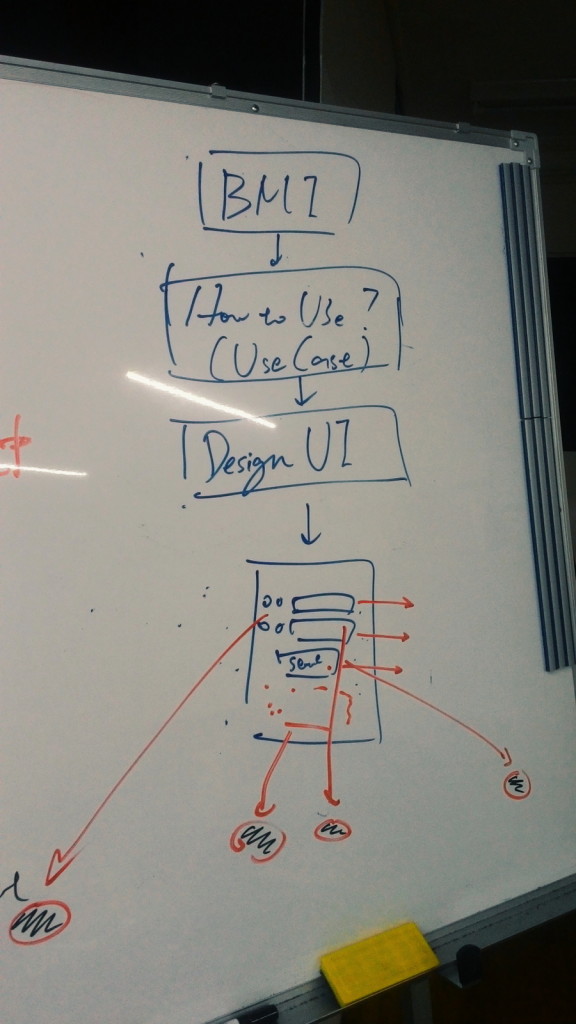 BMI
How to Use?
(Use Case)
Design UI
Send